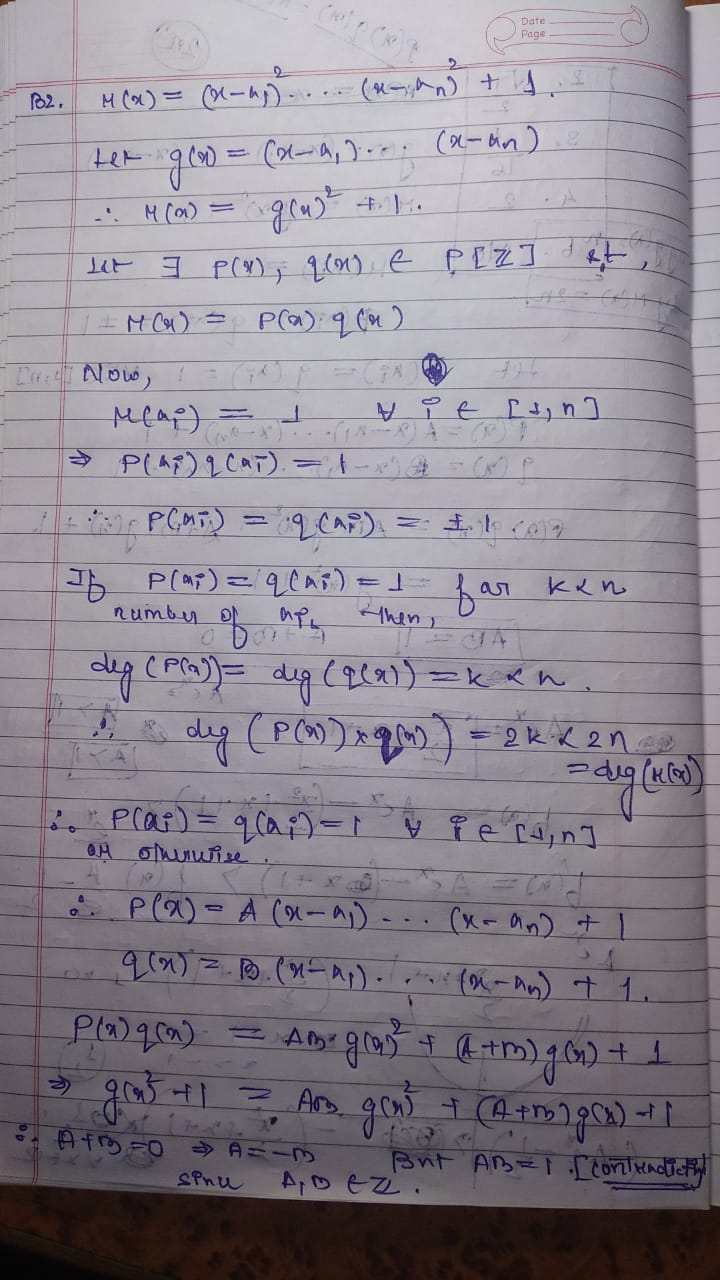 Date
Page
B2. M(x) = (x-a₁)² .... (x-aₙ)² + 1.
Let g(x) = (x-a₁) ... (x-aₙ)
∴ M(x) = g(x)² + 1.
Let ∃ P(x), q(x) ∈ P[ℤ] st,
M(x) = P(x) q(x)
Now,
M(aᵢ) = 1 ∀ i ∈ [1, n]
⇒ P(aᵢ) q(aᵢ) = 1
∴ P(aᵢ) = q(aᵢ) = ± 1
If P(aᵢ) = q(aᵢ) = 1 for k < n
number of aᵢ, then,
deg (P(x)) = deg (q(x)) = k < n.
∴ deg (P(x)) × q(x)) = 2k < 2n
= deg (M(x))
∴ P(aᵢ) = q(aᵢ) = 1 ∀ i ∈ [1, n]
or otherwise.
∴ P(x) = A (x-a₁) ... (x-aₙ) + 1
q(x) = B (x-a₁) ... (x-aₙ) + 1.
P(x) q(x) = AB g(x)² + (A+B) g(x) + 1
⇒ g(x)² + 1 = AB g(x)² + (A+B) g(x) + 1
∴ A+B = 0 ⇒ A = -B But AB = 1 [contradiction]
since A, B ∈ ℤ.